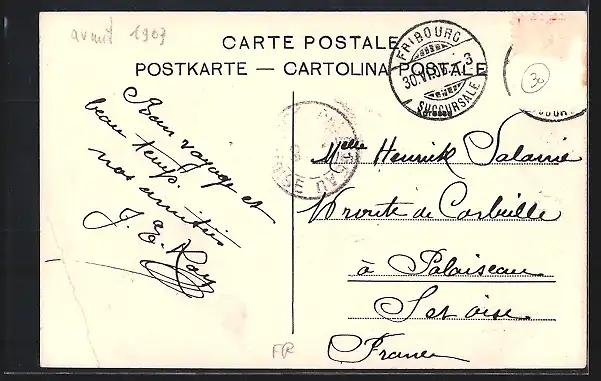 avant 1907
CARTE POSTALE
POSTKARTE — CARTOLINA POSTALE
FRIBOURG
30.VII.06.-3
SUCCURSALE
30
Bon voyage et
beau temps.
nos amitiés
J. E.
Melle Henrik Salomé
route de Corbeille
à Palaiseau
Set oise
France
FR